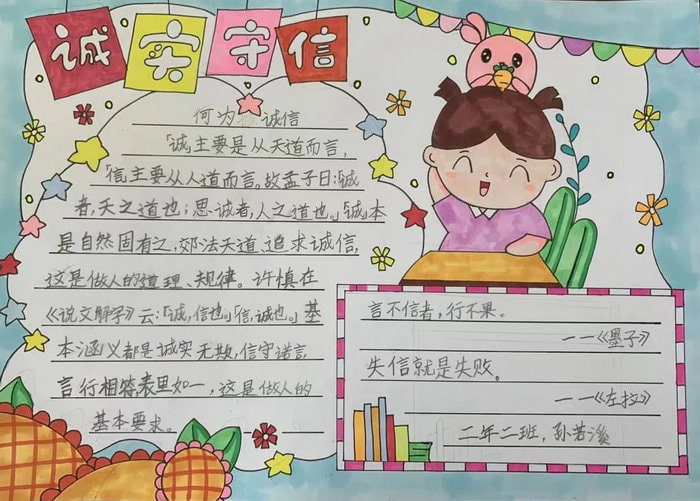 诚实守信
何为 诚信
「诚」主要是从天道而言,
「信」主要从人道而言。故孟子曰:「诚
者,天之道也;思诚者,人之道也。」「诚」本
是自然固有之,效法天道、追求诚信,
这是做人的道理、规律。许慎在
《说文解字》云:「诚,信也。」「信,诚也。」基
本涵义都是诚实无欺,信守诺言,
言行相符,表里如一,这是做人的
基本要求。
言不信者,行不果。
——《墨子》
失信就是失败。
——《左拉》
二年二班,孙若